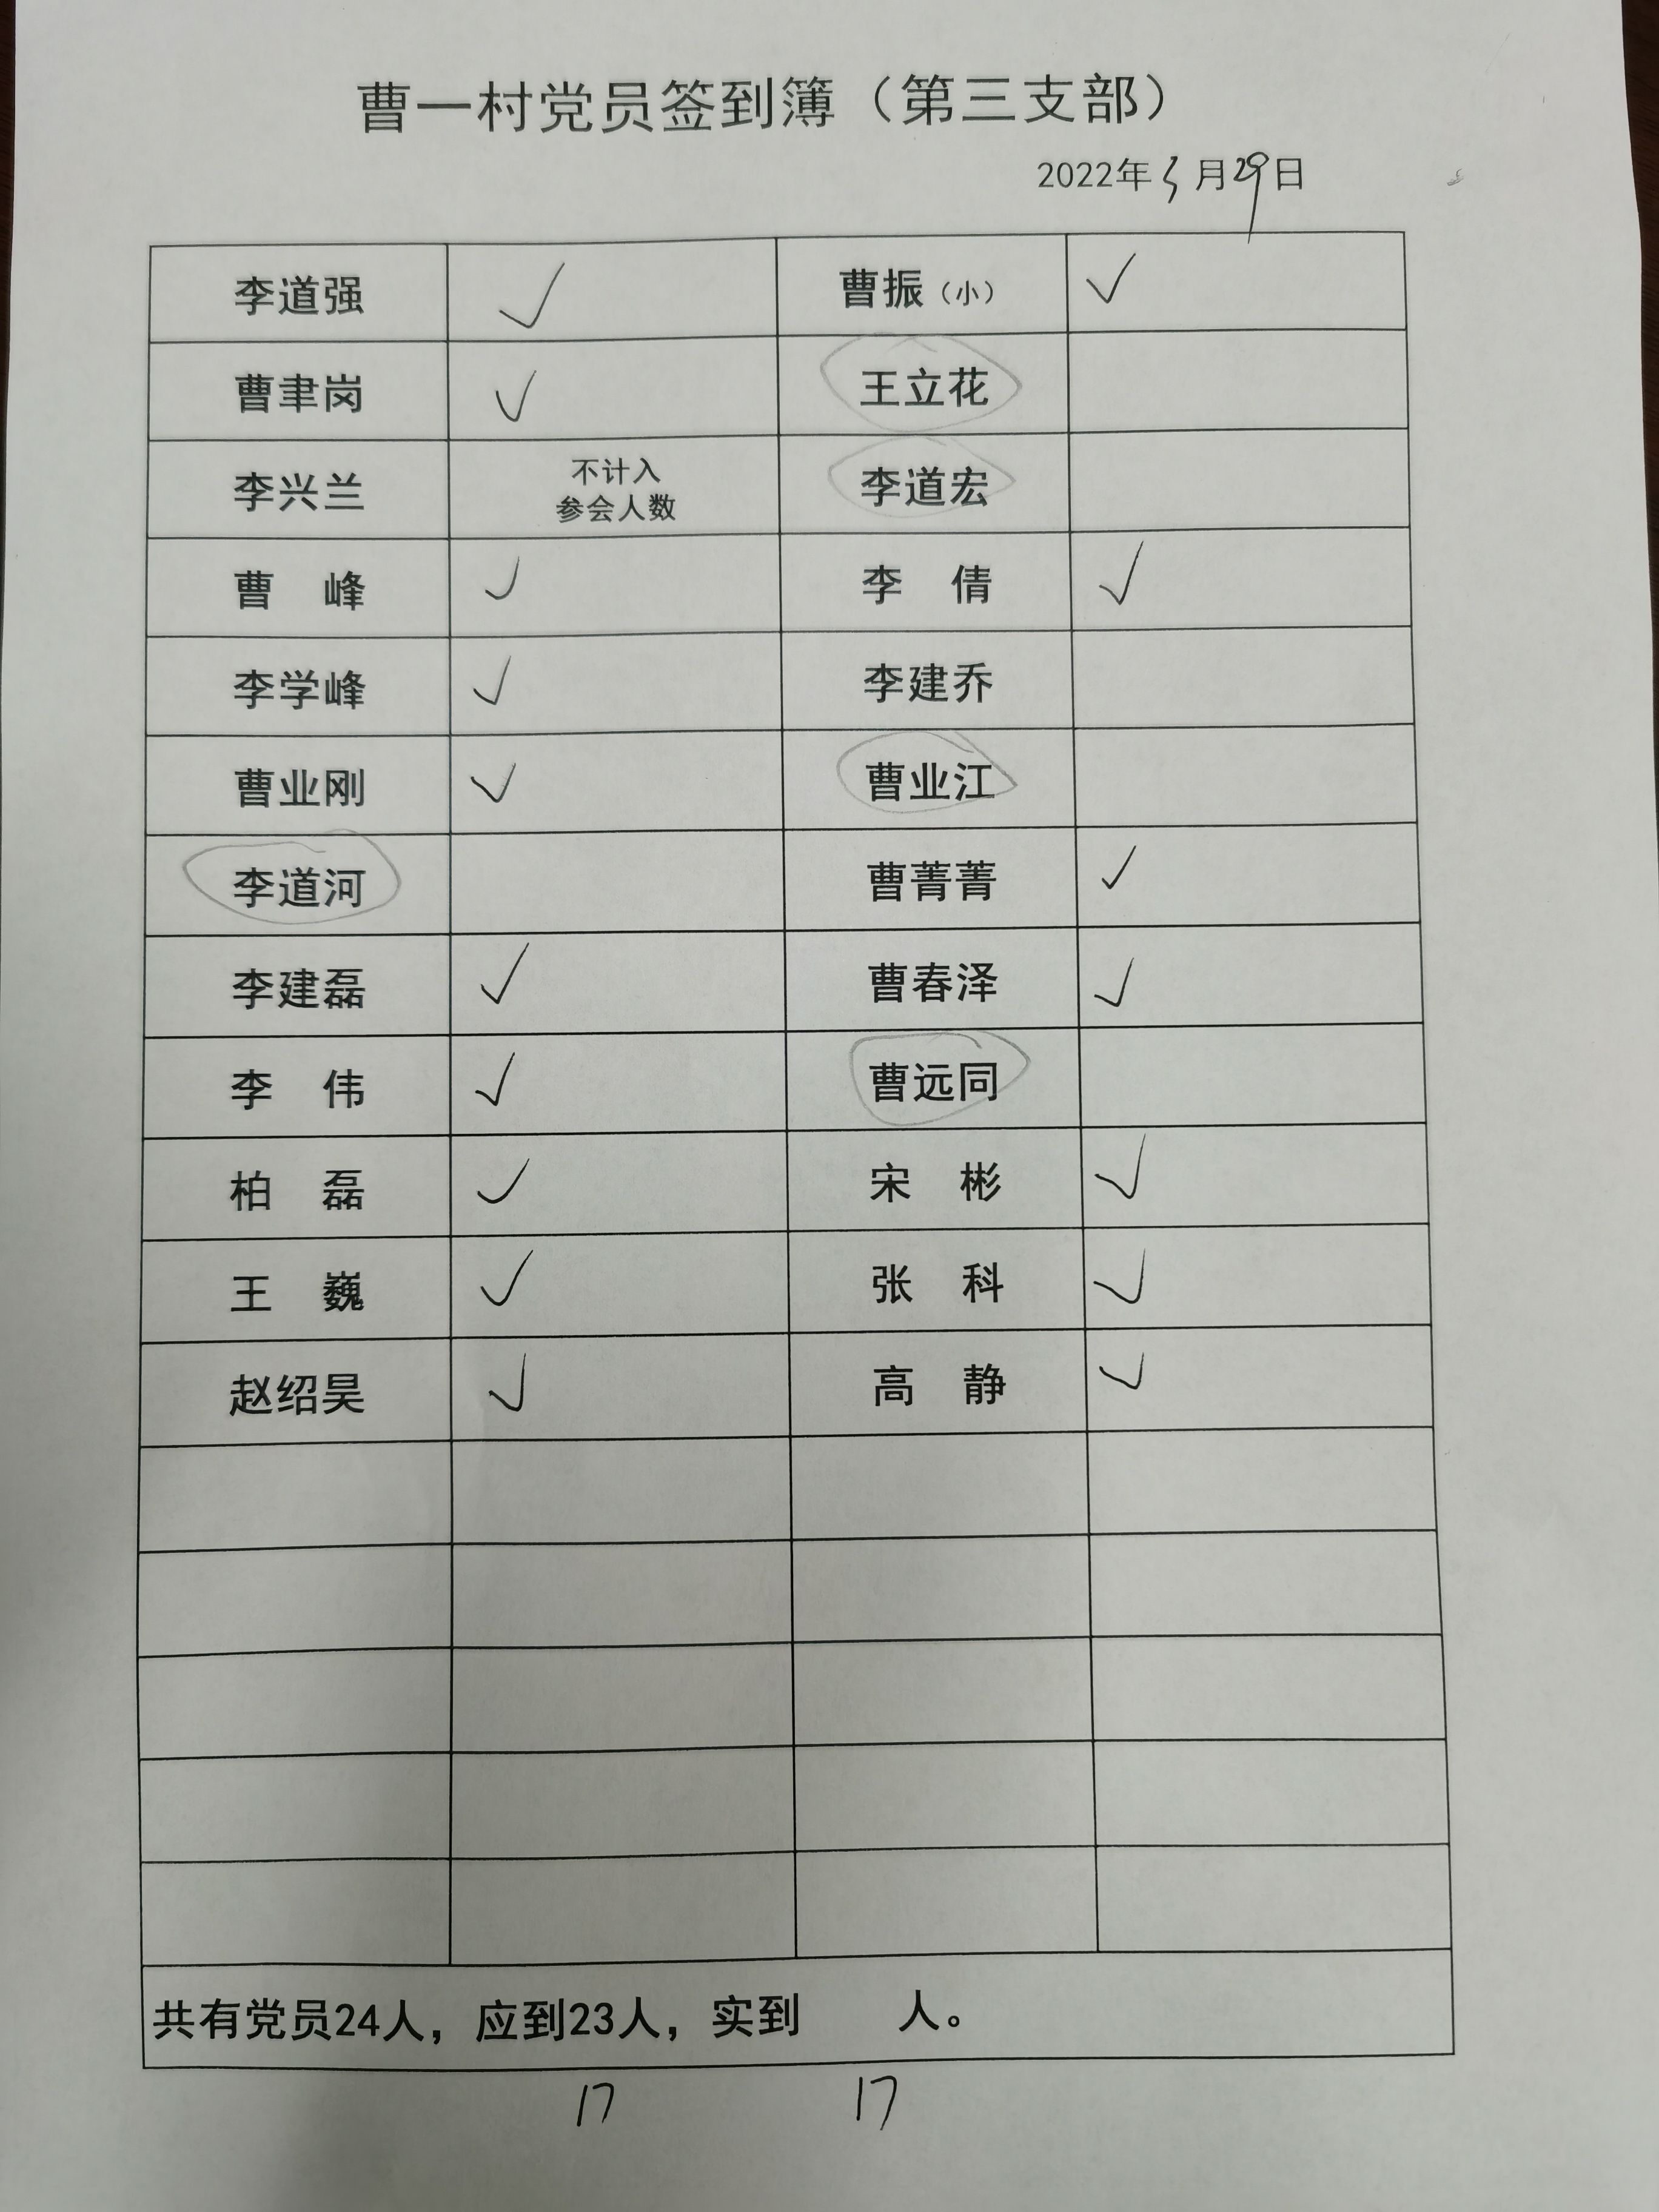 曹一村党员签到簿（第三支部）
2022年3月29日
李道强 ✓ 曹振（小） ✓
曹聿岗 ✓ 王立花
李兴兰 不计入 李道宏
参会人数
曹 峰 ✓ 李 倩 ✓
李学峰 ✓ 李建乔
曹业刚 ✓ 曹业江
李道河 曹菁菁 ✓
李建磊 ✓ 曹春泽 ✓
李 伟 ✓ 曹远同
柏 磊 ✓ 宋 彬 ✓
王 巍 ✓ 张 科 ✓
赵绍昊 ✓ 高 静 ✓
共有党员24人，应到23人，实到 人。
17 17